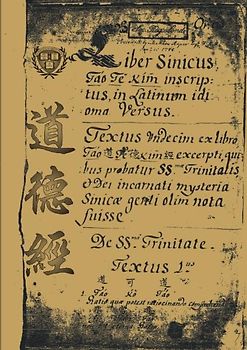 Liber Sinicus
Táo Te Kīm inscrip-
tus, in Latinum idi-
oma Versus.
Textus Undecim ex libro
Táo 道 德 Kīm 經 excerpti, qui
bus probatur SSmæ Trinitatis
& Dei incarnati mysteria
Sinicæ genti olim nota
fuisse.
道德經
De SSma Trinitate.
Textus 1us
道 可 道
Táo Kò Táo
Ratio quæ potest ratiocinando